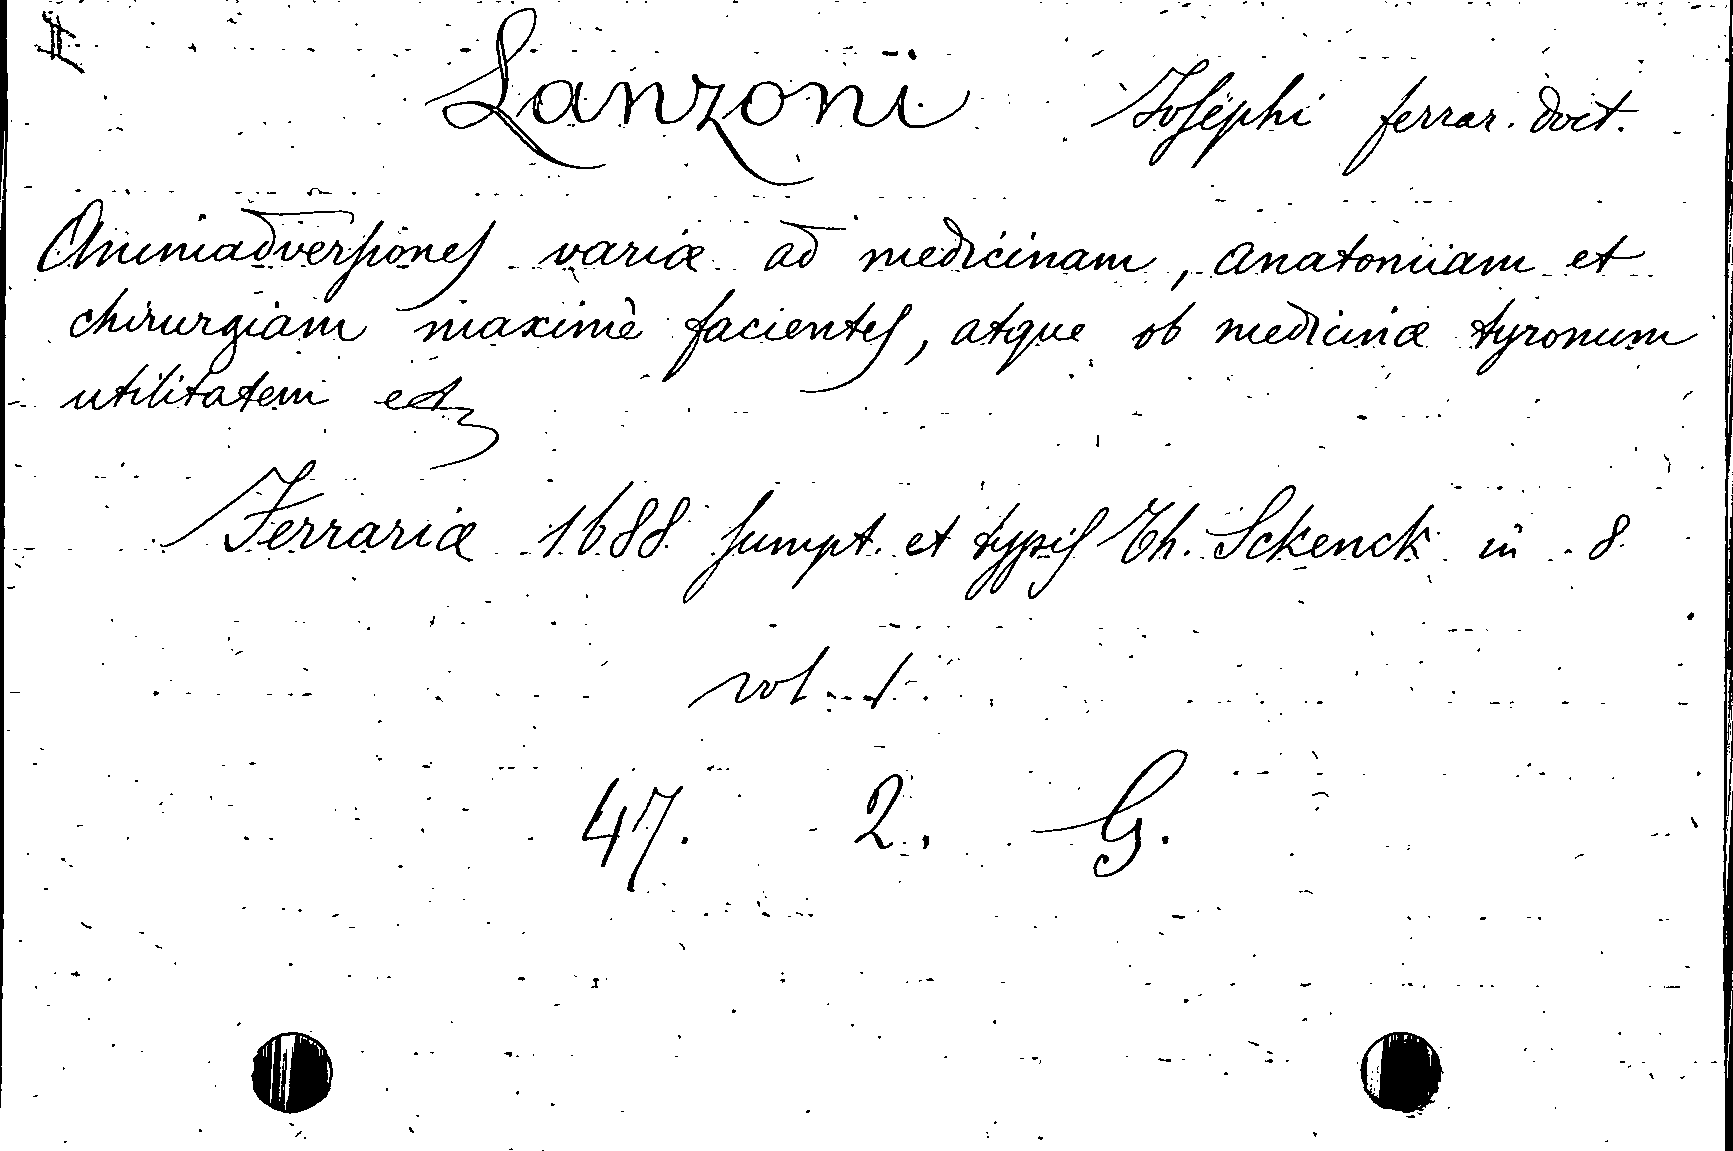 Lanzoni Josephi ferrar. doct.
Animiadversiones variæ ad medicinam, anatomiam et
chirurgiam maximè facientes, atque ob medicinæ tyronum
utilitatem
Ferrariæ 1688 sumpt. et typis Th. Sckenck in 8
vol. 1.
47. 2. G.